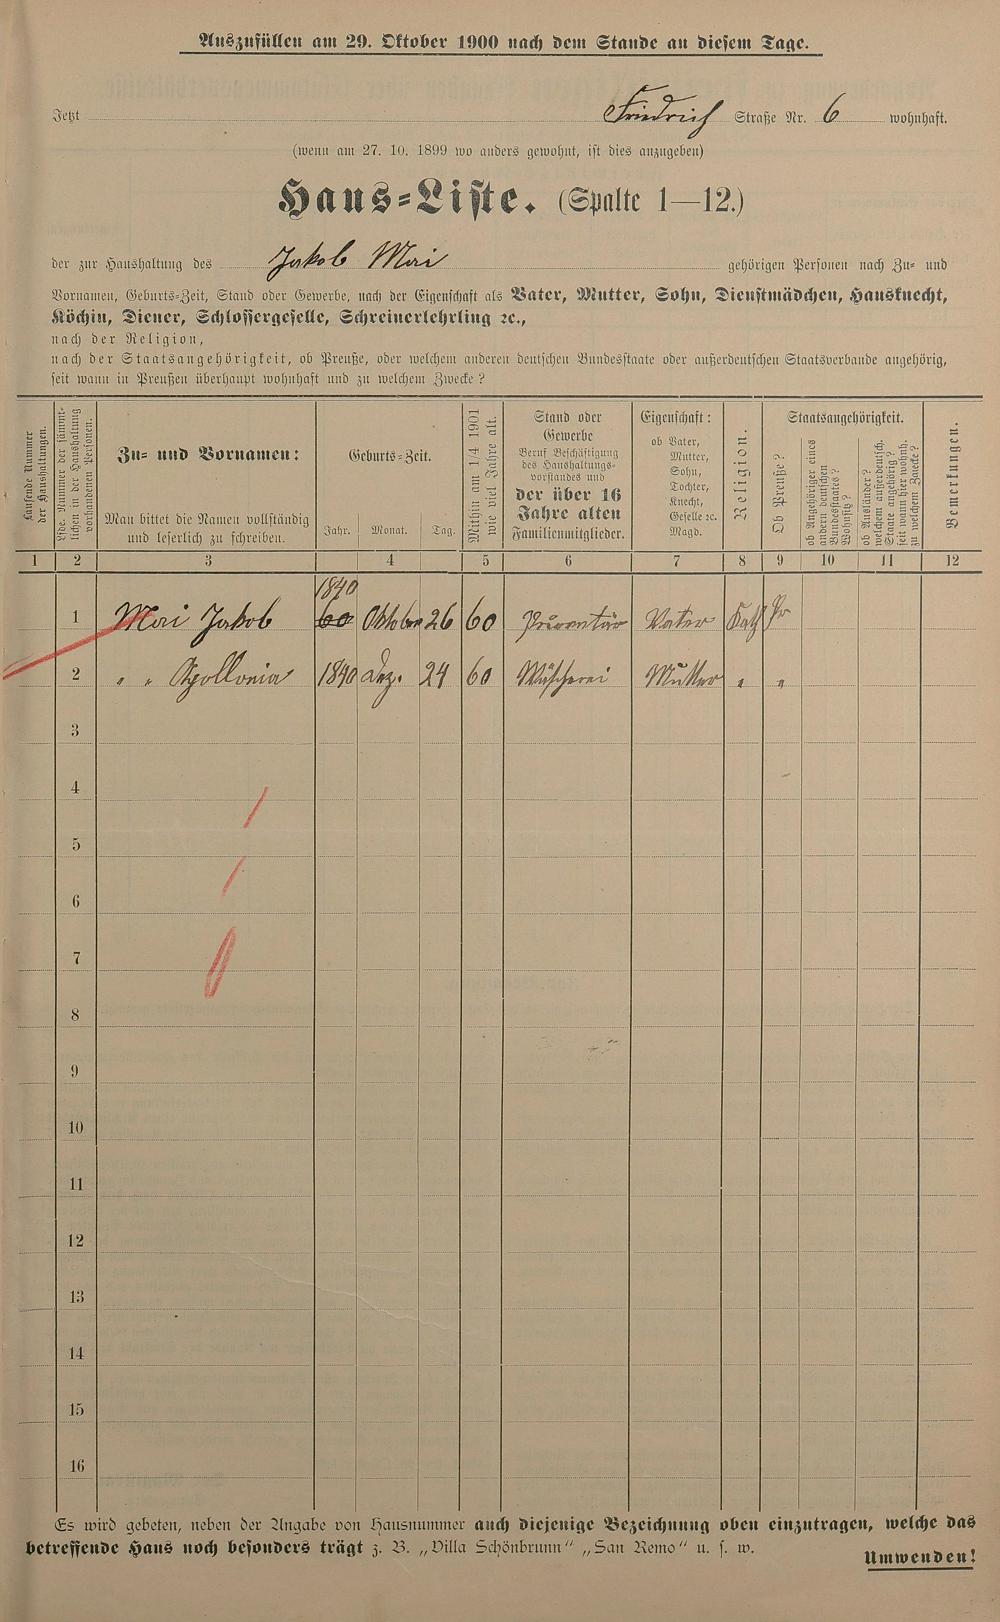 Auszufüllen am 29. Oktober 1900 nach dem Stande an diesem Tage.
Jetzt Friedrich Straße Nr. 6 wohnhaft.
(wenn am 27. 10. 1899 wo anders gewohnt, ist dies anzugeben)
Haus-Liste. (Spalte 1—12.)
der zur Haushaltung des Jakob Mai gehörigen Personen nach Zu- und
Vornamen, Geburts-Zeit, Stand oder Gewerbe, nach der Eigenschaft als Vater, Mutter, Sohn, Dienstmädchen, Hausknecht,
Köchin, Diener, Schlossergeselle, Schreinerlehrling ꝛc.,
nach der Religion,
nach der Staatsangehörigkeit, ob Preuße, oder welchem anderen deutschen Bundesstaate oder außerdeutschen Staatsverbande angehörig,
seit wann in Preußen überhaupt wohnhaft und zu welchem Zwecke?
Laufende Nummer
der Haushaltungen.
Lfde. Nummer der sämmt-
lichen in der Haushaltung
vorhandenen Personen.
Zu- und Vornamen:
Man bittet die Namen vollständig
und leserlich zu schreiben.
Geburts-Zeit.
Jahr. Monat. Tag.
Mithin am 1/4 1901
wie viel Jahre alt.
Stand oder
Gewerbe
Beruf Beschäftigung
des Haushaltungs-
vorstandes und
der über 16
Jahre alten
Familienmitglieder.
Eigenschaft:
ob Vater,
Mutter,
Sohn,
Tochter,
Knecht,
Geselle ꝛc.
Magd.
Religion.
Staatsangehörigkeit.
Ob Preuße?
ob Angehöriger eines
andern deutschen
Bundesstaates?
Wohnsitz?
ob Ausländer?
welchem außerdeutsch.
Staate angehörig?
seit wann hier wohnh.
zu welchem Zwecke?
Bemerkungen.
1 2 3 4 5 6 7 8 9 10 11 12
1840
1 Mai Jakob 60 Oktober 26 60 Vater Kath Pr
2 " " Apollonia 1840 Dez. 24 60 Wäscherei Mutter " "
3
4
5
6
7
8
9
10
11
12
13
14
15
16
Es wird gebeten, neben der Angabe von Hausnummer auch diejenige Bezeichnung oben einzutragen, welche das
betreffende Haus noch besonders trägt z. B. „Villa Schönbrunn" „San Remo" u. s. w.
Umwenden!